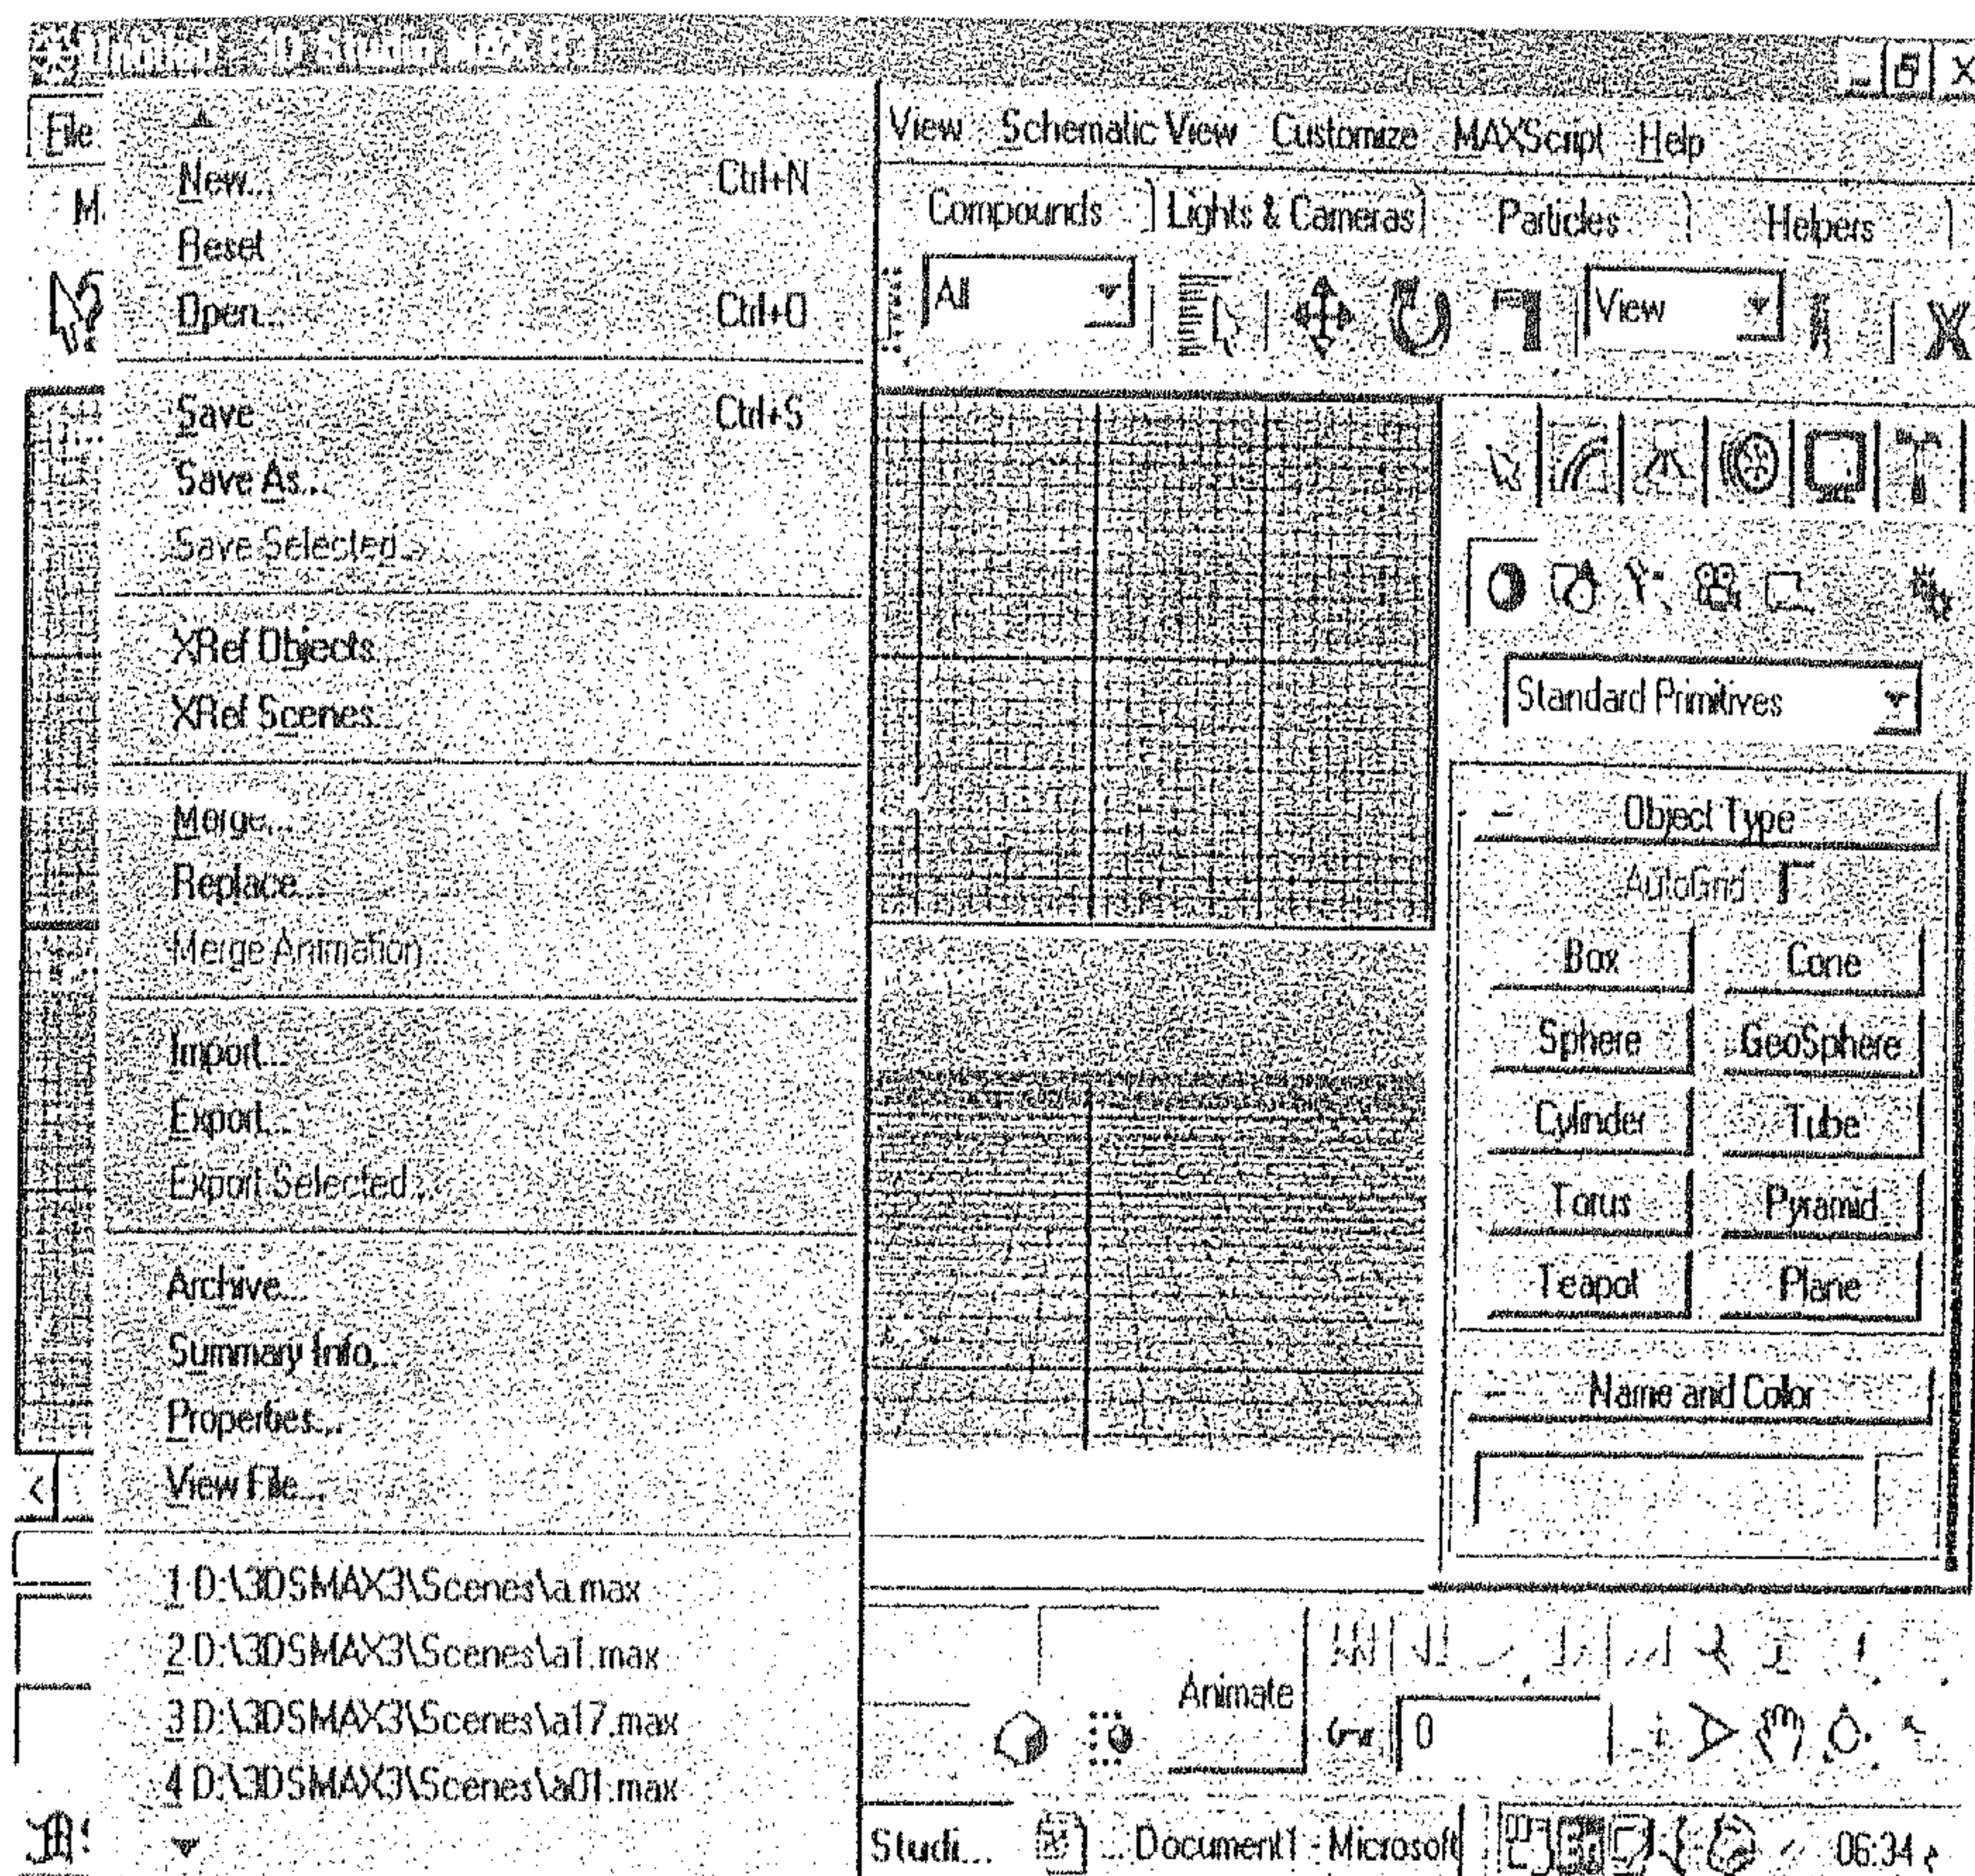 Untitled - 3D Studio MAX R3
File
View Schematic View Customize MAXScript Help
New... Ctrl+N
Reset
Open... Ctrl+O
Save Ctrl+S
Save As...
Save Selected...
XRef Objects...
XRef Scenes...
Merge...
Replace...
Merge Animation...
Import...
Export...
Export Selected...
Archive...
Summary Info...
Properties...
View File...
1 D:\3DSMAX3\Scenes\a.max
2 D:\3DSMAX3\Scenes\a1.max
3 D:\3DSMAX3\Scenes\a17.max
4 D:\3DSMAX3\Scenes\a01.max
M
Compounds Lights & Cameras Particles Helpers
All View
Standard Primitives
Object Type
AutoGrid
Box Cone
Sphere GeoSphere
Cylinder Tube
Torus Pyramid
Teapot Plane
Name and Color
Animate
0
Studi... Document1 - Microsoft 06:34 م